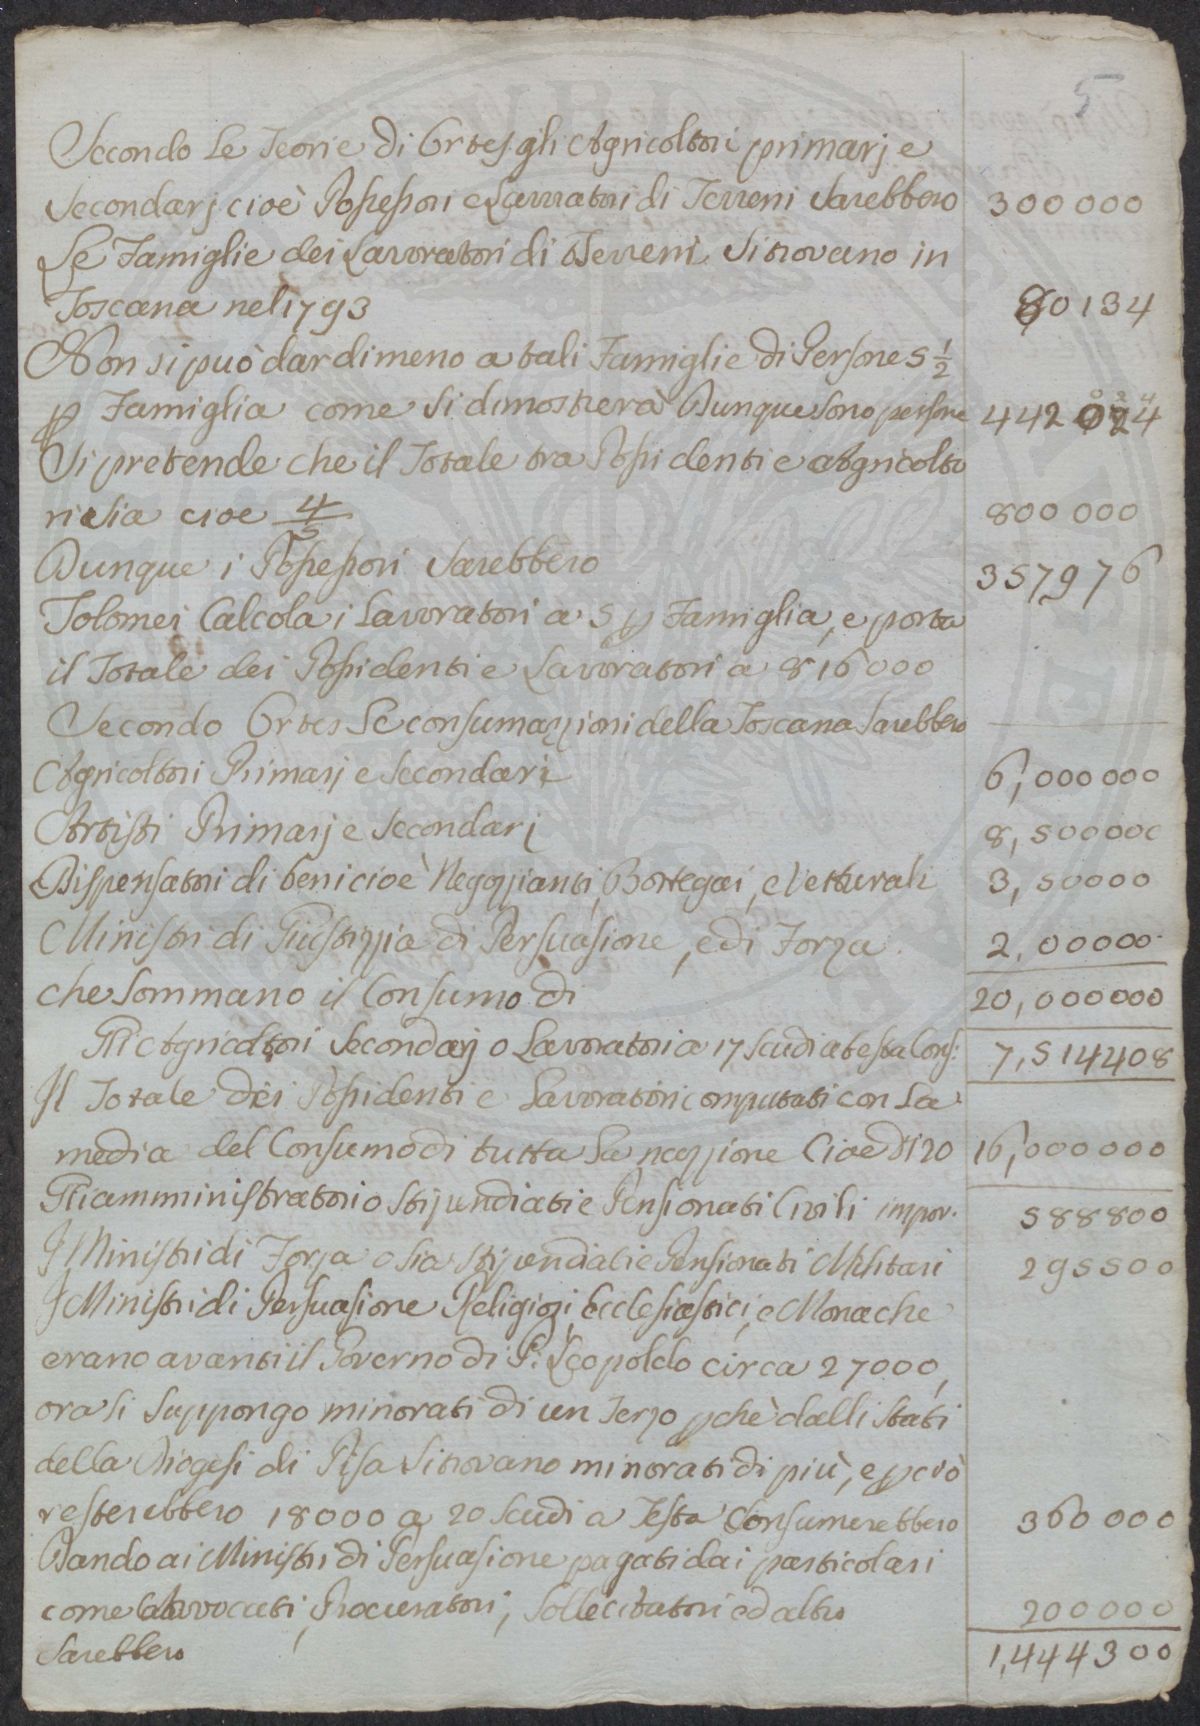 5
Secondo Le Teorie di Ortes gli Agricoltori primarj e
Secondarj cioè Possessori e Lavoratori di Terreni Sarebbero 300000
Le Famiglie dei Lavoratori di Terreni Si trovano in
Toscana nel 1793 80134
Non si può dar di meno a tali Famiglie di Persone 5 1/2
p Famiglia come Si dimostrerà Dunque Sono persone 442024
Si pretende che il Totale tra Possidenti e Agricolto
ri Sia cioe 4/5 800000
Dunque i Possessori Sarebbero 357976
Tolomei Calcola i Lavoratori a 5 p Famiglia, e porta
il Totale dei Possidenti e Lavoratori a 816000
Secondo Ortes Le consumazzioni della Toscana Sarebbero
Agricoltori Primarj e Secondarj 6,000000
Artisti Primarj e Secondarj 8,500000
Dispensatori di beni cioè Negozzianti, Bottegai, e Vetturali 3,50000
Ministri di Giustizzia di Persuasione, e di Forza 2,00000
che Sommano il Consumo di 20,000000
Gli Agricoltori Secondarj o Lavoratori a 17 Scudi a testa Cons: 7,514408
Il Totale dei Possidenti e Lavoratori computati con La
media del Consumo di tutta La nazzione Cioe di 20 16,000000
Gli amministratori o Stipendiati e Pensionati Civili impor. 588800
I Ministri di Forza o sia Stipendiati e Pensionati Militari 295500
I Ministri di Persuasione Religiozi, Ecclesiastici, e Monache
erano avanti il Governo di P. Leopoldo circa 27000,
ora si Suppongo minorati di un Terzo pchè dalli Stati
della Diogesi di Pisa Si trovano minorati di più, e pciò
resterebbero 18000 a 20 Scudi a Testa Consumerebbero 360000
Dando ai Ministri di Persuasione pagati dai particolari
come Avvocati, Procuratori, Sollecitatori ed altro 200000
Sarebbero 1,444300